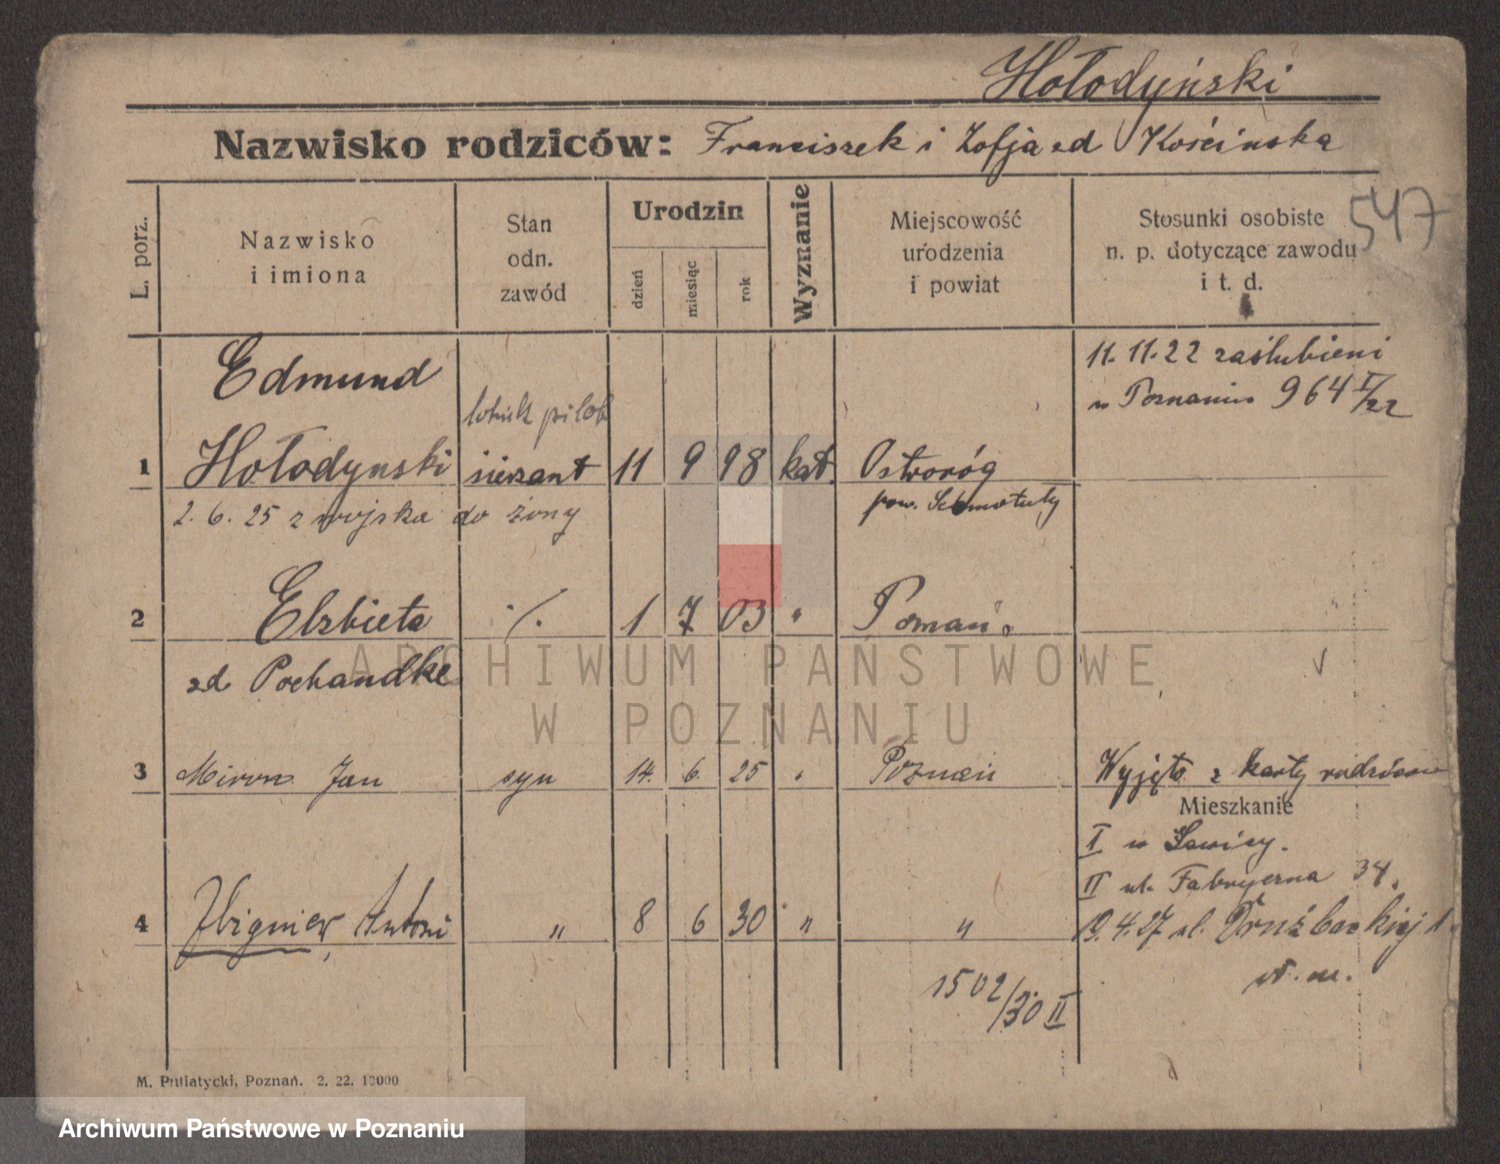 Hołodyński
Nazwisko rodziców: Franciszek i Zofja zd Kościńska
547
L. porz.
Nazwisko
i imiona
Stan
odn.
zawód
Urodzin
dzień
miesiąc
rok
Wyznanie
Miejscowość
urodzenia
i powiat
Stosunki osobiste
n. p. dotyczące zawodu
i t. d.
11. 11. 22 zaślubieni
w Poznaniu 964 I/22
Edmund
lotnik pilot
1 Hołodynski sierżant 11 9 98 kat. Ostroróg
pow. Szamotuły
2. 6. 25 z wojska do żony
2 Elzbieta ./. 1 7 03 " Poznań
zd. Pochandke
3 Miron Jan syn 14. 6. 25 " Poznań Wyjęto z karty rodziców
Mieszkanie
I w Ławicy.
II ul. Fabryczna 34.
4 Zbigniew, Antoni " 8 6 30 " " 19. 4. 27 ul. Drużbackiej 1.
1502/30 II
M. Putiatycki, Poznań. 2. 22. 10000
ARCHIWUM PAŃSTWOWE
W POZNANIU
Archiwum Państwowe w Poznaniu